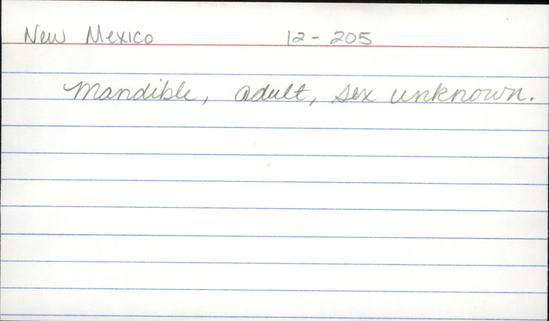 New Mexico 12-205
Mandible, adult, sex unknown.